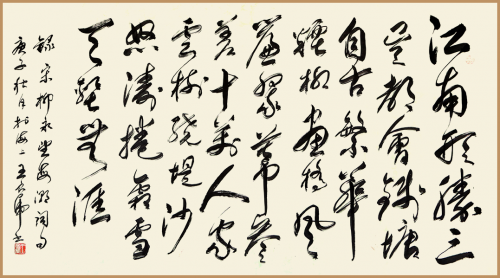 江南形勝三
吳都會錢塘
自古繁華
煙柳畫橋風
簾翠幕參
差十萬人家
雲樹繞堤沙
怒濤捲霜雪
天塹無涯
錄宋柳永望海潮詞句
庚子壮月於海上王书